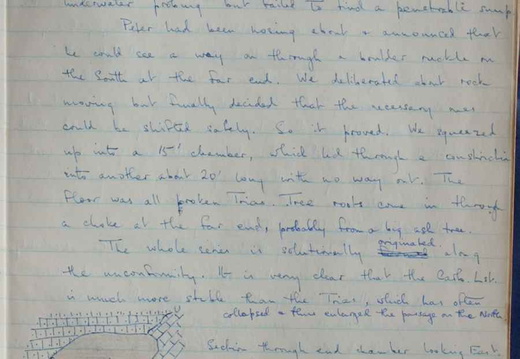 underwater probing but failed to find a penetrable sump
Peter had been nosing about & announced that
he could see a way on through a boulder ruckle on
the South at the far end. We deliberated about rock
moving but finally decided that the necessary ones
could be shifted safely. So it proved. We squeezed
up into a 15' chamber, which led through a constriction
into another about 20' long with no way out. The
floor was all broken Trias. Tree roots come in through
a choke at the far end, probably from a big ash tree.
The whole series is solutionally originated along
the unconformity. It is very clear that the Carb. Lst.
is much more stable than the Trias, which has often
collapsed & thus enlarged the passage on the North
Section through end chamber looking East.